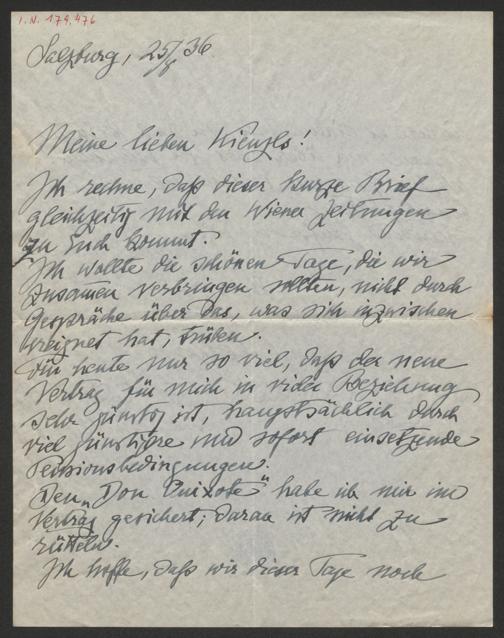 I.N. 179.476
Salzburg, 25/8 36
Meine lieben Kienzls!
Ich rechne, daß dieser kurze Brief
gleichzeitig mit den Wiener Zeitungen
zu Euch kommt.
Ich wollte die schönen Tage, die wir
zusammen verbringen sollten, nicht durch
Gespräche über das, was sich inzwischen
ereignet hat, trüben.
Für heute nur so viel, daß der neue
Vertrag für mich in vieler Beziehung
sehr günstig ist, hauptsächlich durch
viel günstigere und sofort einsetzende
Pensionsbedingungen.
Den „Don Quixote" habe ich mir im
Vertrag gesichert; daran ist nicht zu
rütteln.
Ich hoffe, daß wir dieser Tage noch